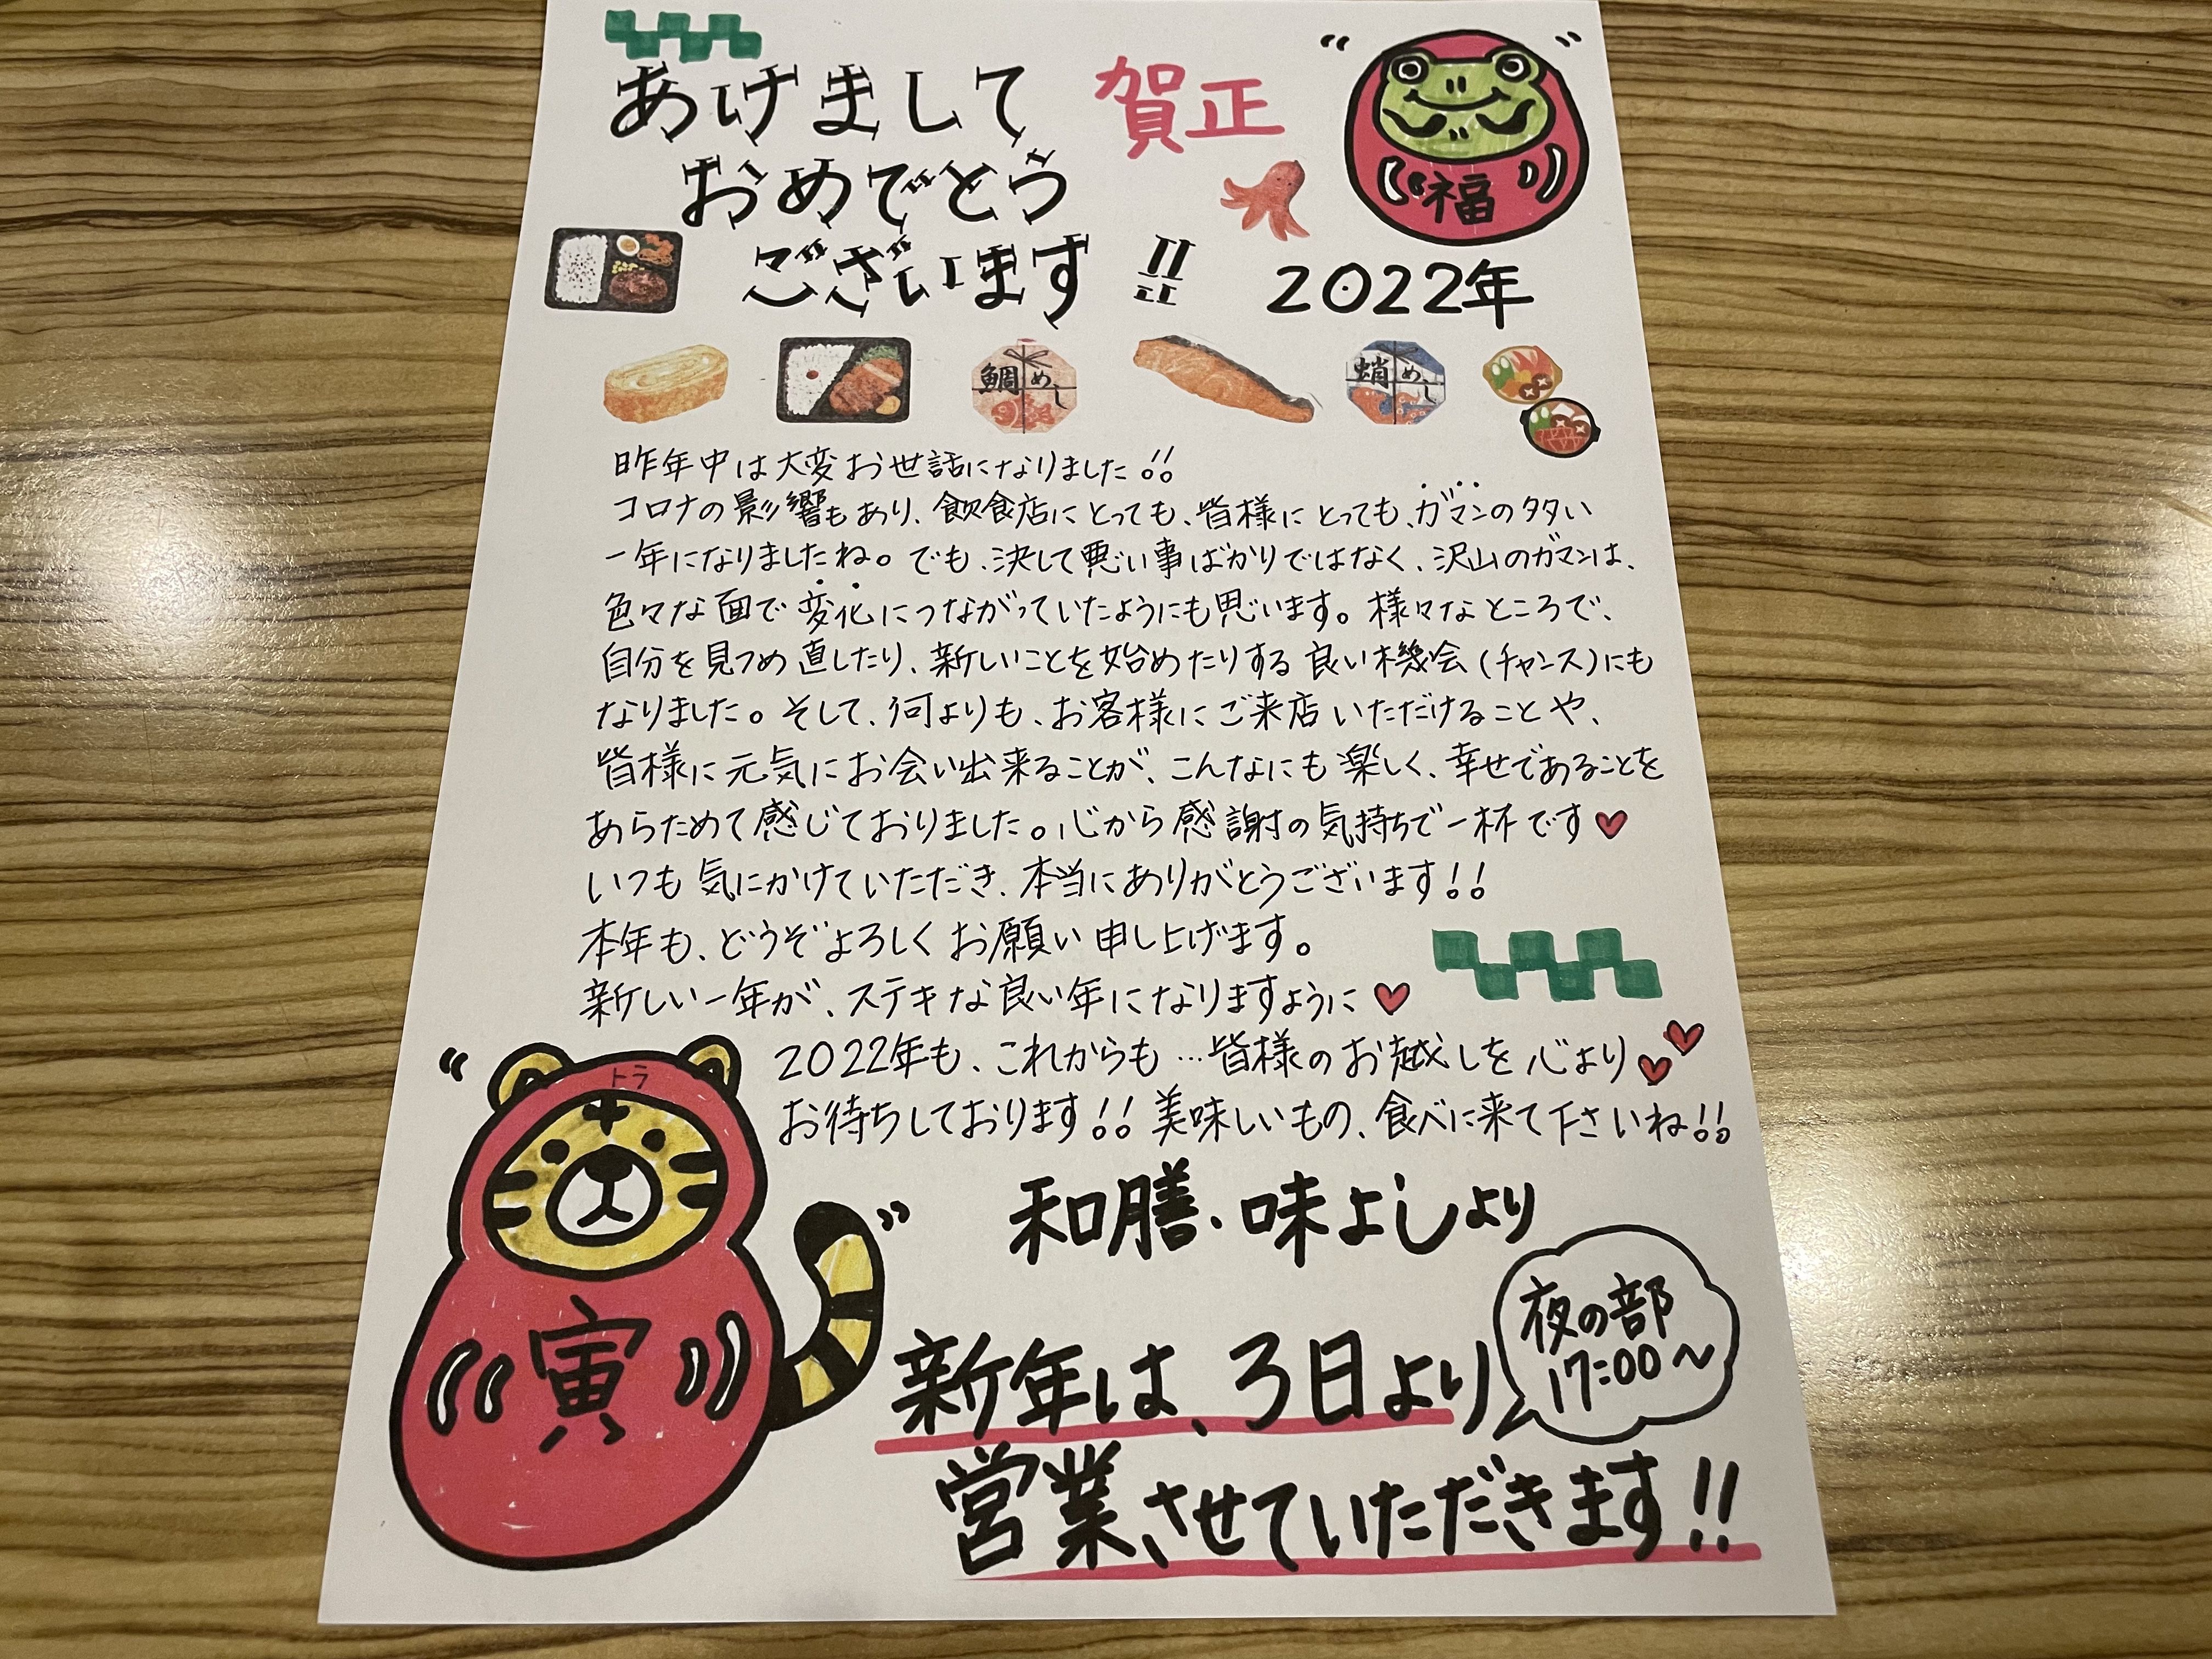 あけまして
おめでとう
ございます!!
賀正
福
2022年
鯛めし
蛸めし
昨年中は大変お世話になりました!!
コロナの影響もあり、飲食店にとっても、皆様にとっても、ガマンの多い
一年になりましたね。でも、決して悪い事ばかりではなく、沢山のガマンは、
色々な面で変化につながっていたようにも思います。様々なところで、
自分を見つめ直したり、新しいことを始めたりする良い機会(チャンス)にも
なりました。そして、何よりも、お客様にご来店いただけることや、
皆様に元気にお会い出来ることが、こんなにも楽しく、幸せであることを
あらためて感じておりました。心から感謝の気持ちで一杯です♥
いつも気にかけていただき、本当にありがとうございます!!
本年も、どうぞよろしくお願い申し上げます。
新しい一年が、ステキな良い年になりますように♥
2022年も、これからも…皆様のお越しを心より
お待ちしております!!美味しいもの、食べに来て下さいね!!
トラ
寅
和膳・味よしより
新年は、3日より
夜の部
17:00〜
営業させていただきます!!